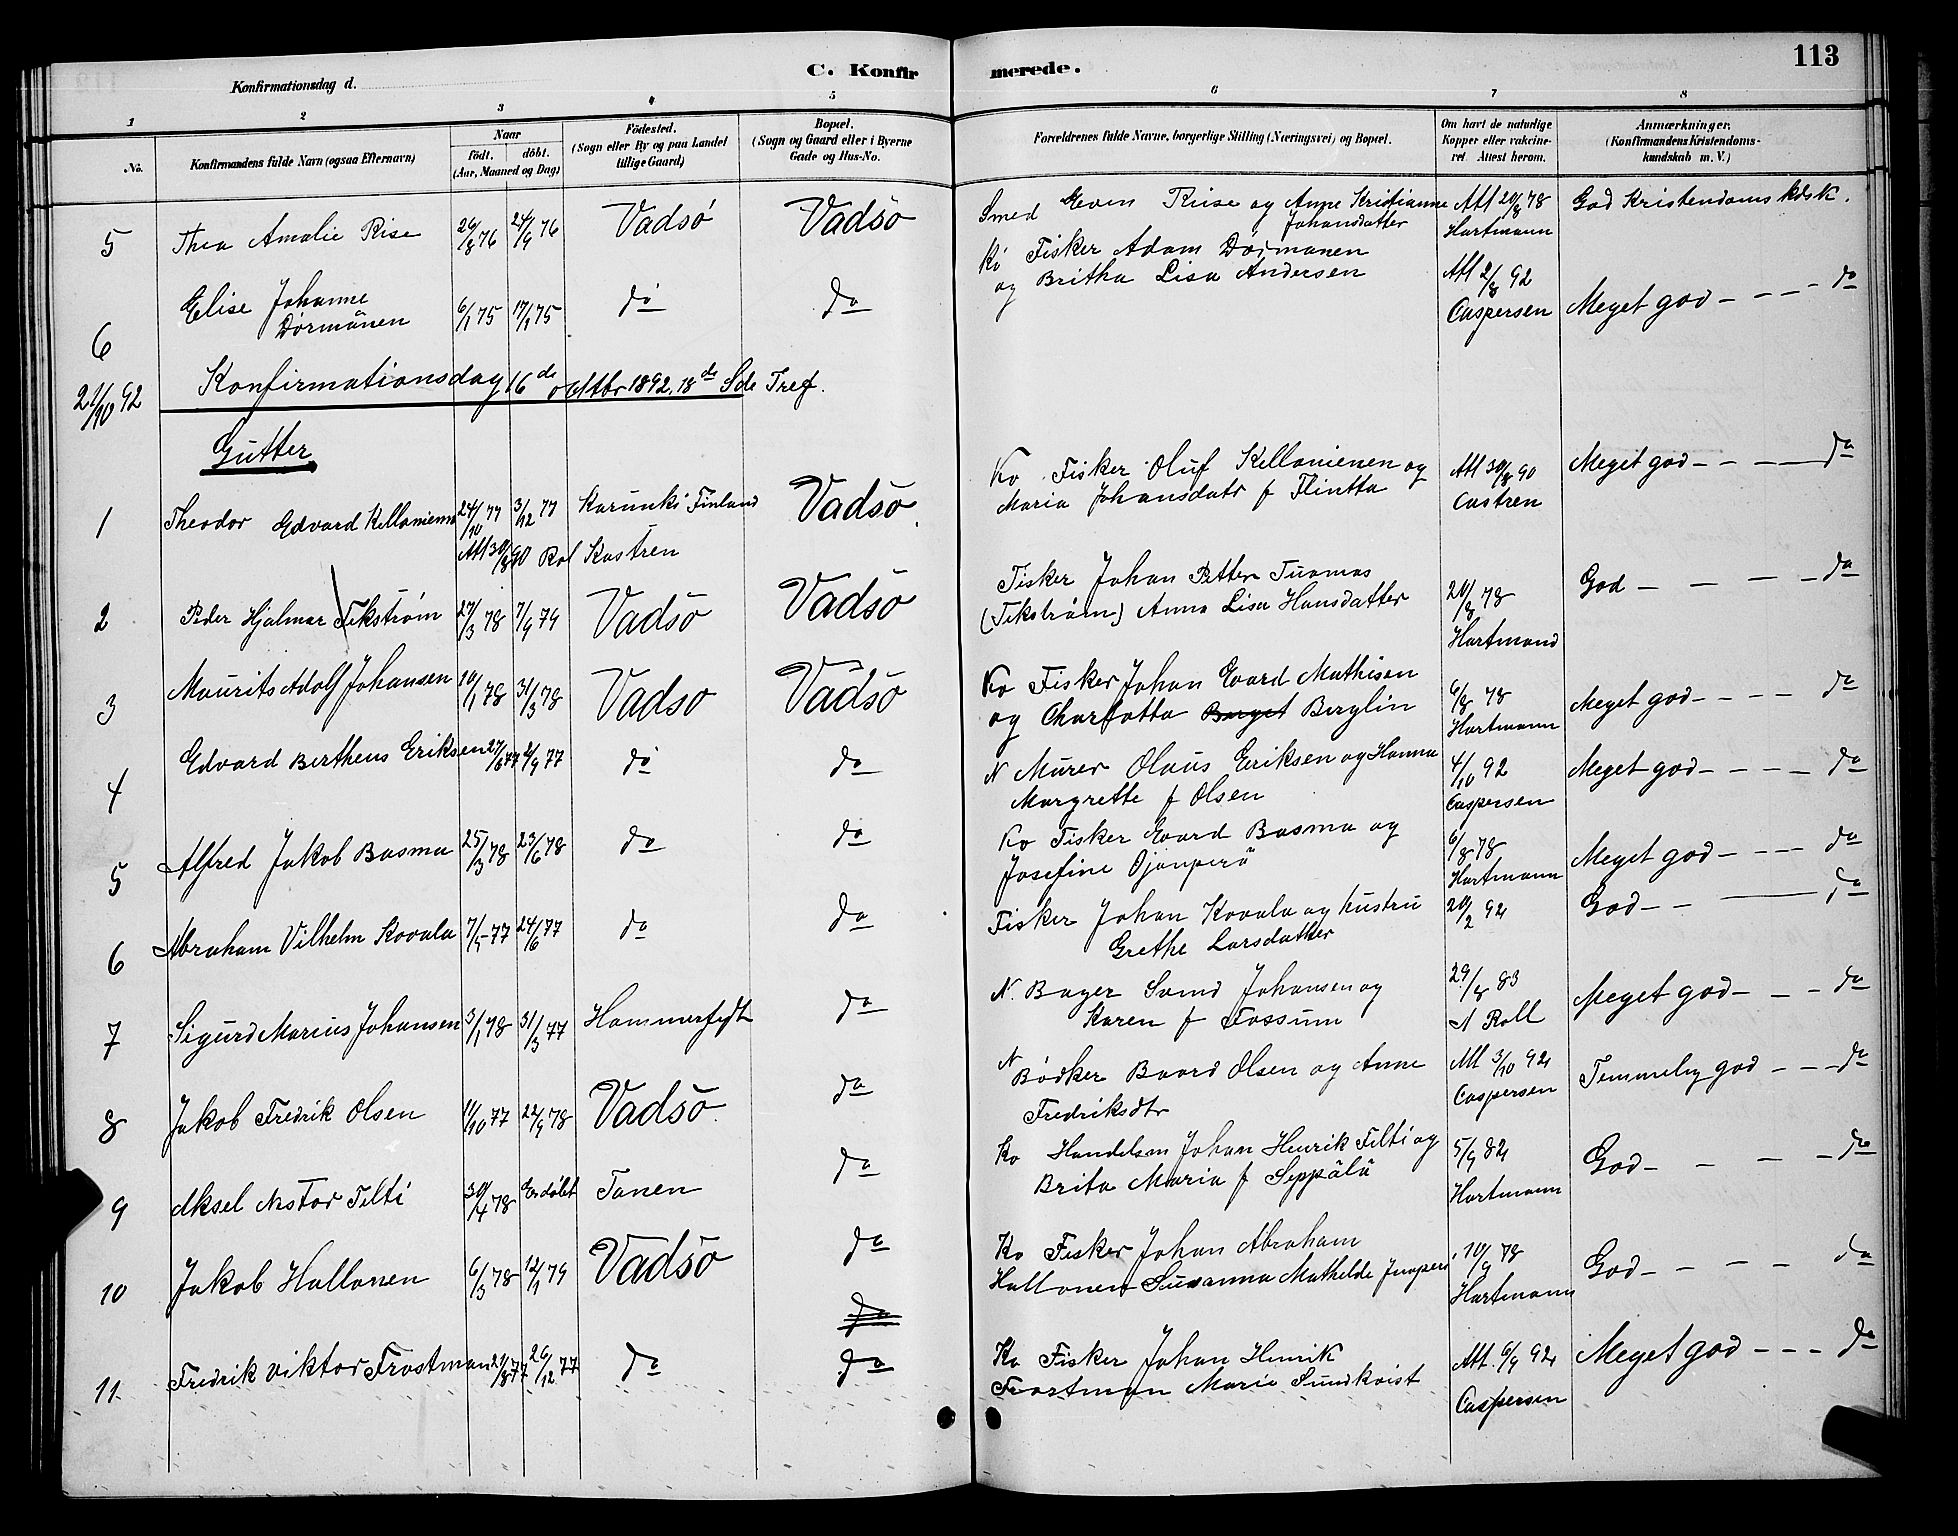 113
Konfirmationsdag d.
C. Konfir merede.
1 2 3 4 5 6 7 8
No.
Konfirmandens fulde Navn (ogsaa Efternavn)
Naar
födt. döbt.
(Aar, Maaned og Dag)
Födested.
(Sogn eller By og paa Landet
tillige Gaard)
Bopæl.
(Sogn og Gaard eller i Byerne
Gade og Hus-No.
Forældrenes fulde Navne, borgerlige Stilling (Næringsvei) og Bopæl.
Om havt de naturlige
Kopper eller vakcine-
ret. Attest herom.
Anmærkninger.
(Konfirmandens Kristendoms-
kundskab m. V.)
5 Thea Amalie Rise 26/8 76 24/9 76 Vadsö Vadsö
Smed Even Riise og Anne Kristianne
Johansdatter
Att 20/8 78
Hartmann
God Kristendoms kdsk.
6 Elise Johanne
Dörmänen
6/1 75 17/1 75 do do
Kv Fisker Adam Dörmanen
og Britha Lisa Andersen
Att 2/8 92
Caspersen
Meget god - - - - do
21/10 92 Konfirmationsdag 16de oktbr 1892, 18de Sde Tref.
Gutter
1 Theodor Edvard Kellonienen 24/10 77 3/12 77 Karunki Finland Vadsö
Att 30/8 90 Rol Kastren
Kv Fisker Oluf Kellonienen og
Maria Johansdatr f Flintta
Att 30/8 90
Castren
Meget god - - - do
2 Peder Hjalmar Tekström 27/3 78 7/9 79 Vadsö Vadsö
Fisker Johan Petter Tuomas
(Tekström) Anna Lisa Hansdatter
20/8 78
Hartmand
God - - - - do
3 Maurits Adolf Johansen 10/1 78 31/3 78 Vadsö Vadsö
Kv Fisker Johan Evard Mathisen
og Charlotta Berget Berglin
6/8 78
Hartmann
Meget god - - - - do
4 Edvard Berthens Eriksen 27/6 77 2/9 77 do do
N Murer Olaus Eriksen og Hanna
Margrette f Olsen
4/10 92
Caspersen
Meget god - - - - do
5 Alfred Jakob Basma 25/3 78 23/6 78 do do
Kv Fisker Evard Basma og
Josefine Ojanperä
6/8 78
Hartmann
Meget god - - - - do
6 Abraham Vilhelm Kovala 7/5 77 24/6 77 do do
Fisker Johan Kovala og hustru
Grethe Larsdatter
20/2 92
God - - - do
7 Sigurd Marius Johansen 3/1 78 31/3 77 Hammerfest do
N. Bager Svend Johansen og
Karen f Fossum
29/8 83
N Roll
Meget god - - - do
8 Jakob Fredrik Olsen 11/10 77 22/9 78 Vadsö do
N Bödker Baard Olsen og Anne
Fredriksdtr
Att 3/10 92
Caspersen
Temmelig god - - - do
9 Aksel Nestor Telti 30/4 78 Er döbt Tanen do
Kv Handelsm Johan Henrik Tilti og
Brita Maria f Seppälä
5/9 82
Hartmann
God - - - - do
10 Jakob Hallonen 6/3 78 12/1 79 Vadsö do
Kv Fisker Johan Abraham
Hallonen Susanna Mathilde
10/9 78
Hartmann
God - - - - do
do
11. Fredrik Viktor Frostman 21/8 77 26/12 77 do do
Kv Fisker Johan Henrik
Frostman Marie Sundkvist
Att. 6/9 92
Caspersen
Meget god - - - do